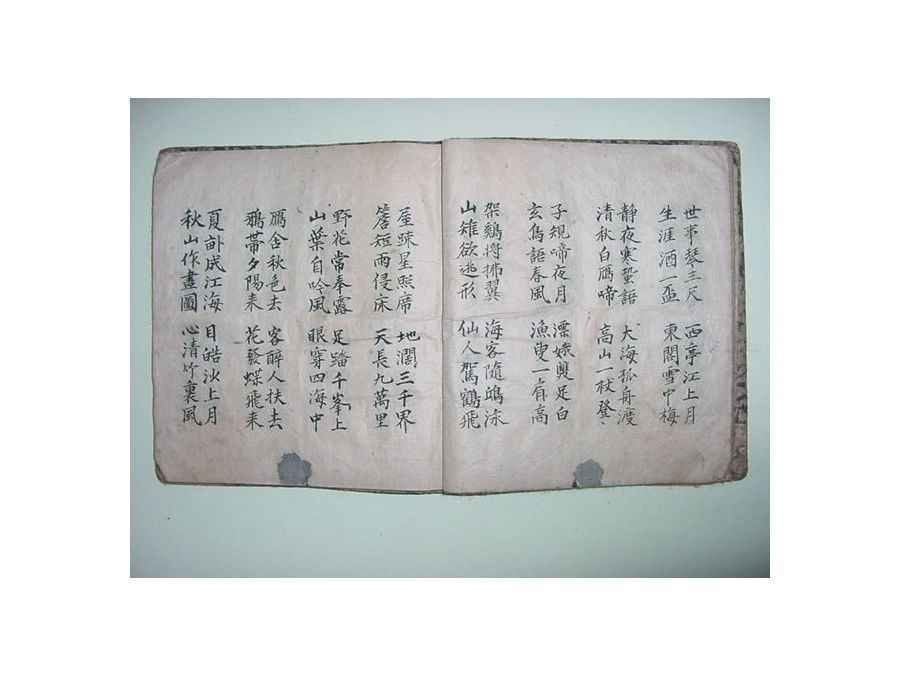 世事琴三尺
生涯酒一盃
西亭江上月
東閣雪中梅
静夜寒蛩語
清秋白鴈啼
大海孤舟渡
高山一杖登
子規啼夜月
玄鳥語春風
漂娥雙足白
漁叟一肩高
架鷄将拂翼
山雉欲逃形
海客隨鴎泳
仙人駕鶴飛
屋疎星照席
簷短雨侵床
地濶三千界
天長九萬里
野花常奉露
山葉自吟風
足踏千峯上
眼穿四海中
鴈含秋色去
鴉帶夕陽来
客醉人扶去
花發蝶飛来
夏成江海
秋山作畫圖
目皓沙上月
心清竹裏風